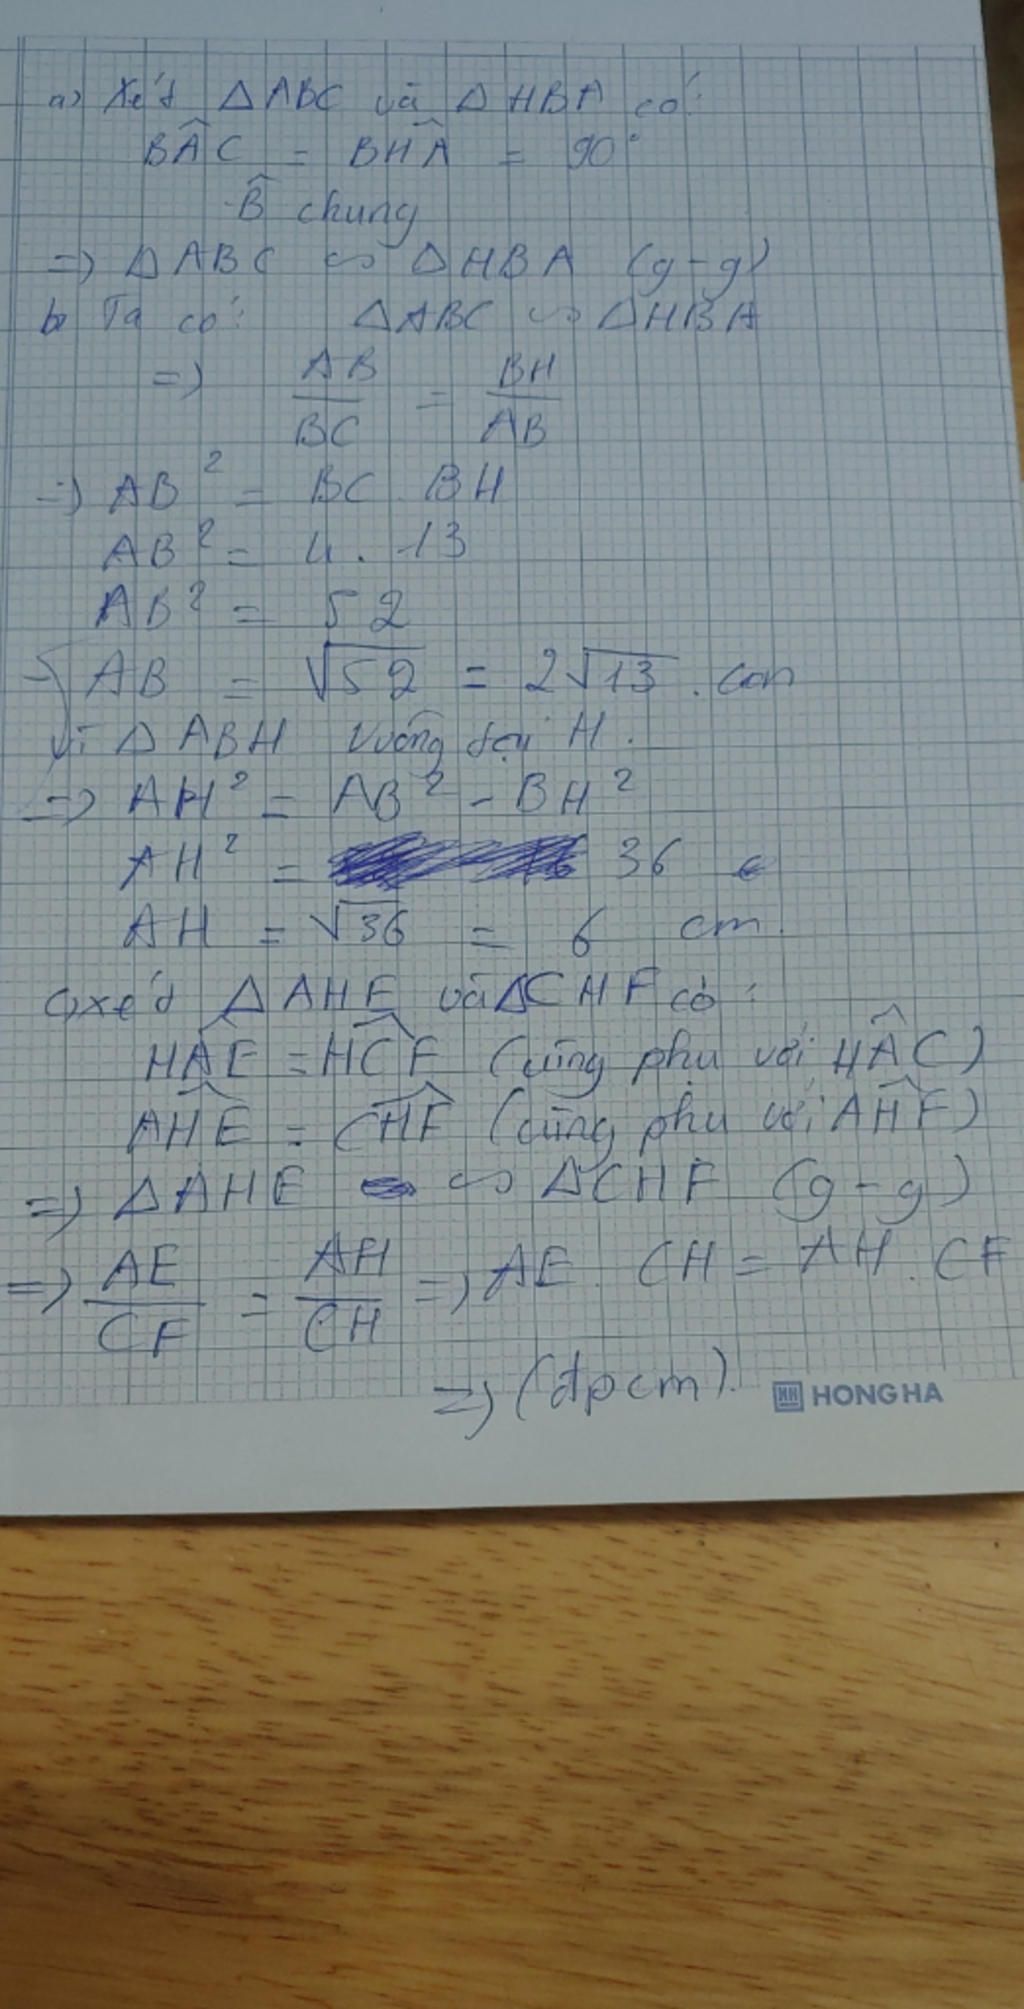 a) Xét ΔABC và ΔHBA có:
BÂC = BĤA = 90°
B̂ chung
=> ΔABC ∽ ΔHBA (g-g)
b) Ta có: ΔABC ∽ ΔHBA
=> AB/BC = BH/AB
=> AB² = BC . BH
AB² = 4 . 13
AB² = 52
AB = √52 = 2√13 . cm
Vì ΔABH vuông tại H.
=> AH² = AB² - BH²
AH² = 36
AH = √36 = 6 cm.
c) xét ΔAHE và ΔCHF có:
HÂE = HĈF (cùng phụ với HÂC)
AĤE = CĤF (cùng phụ với AĤF)
=> ΔAHE ∽ ΔCHF (g-g)
=> AE/CF = AH/CH => AE . CH = AH . CF
=> (đpcm).
HONG HA